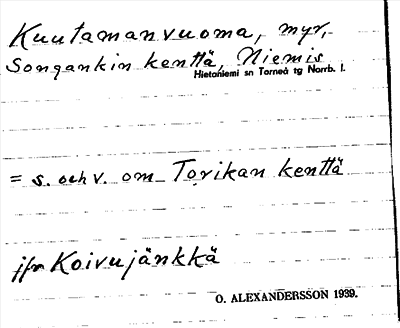 Kuutamanvuoma, myr,
Songankin kenttä, Niemis
Hietaniemi sn Torneå tg Norrb. l.
= s. och v. om Torikan kenttä
jfr Koivujänkkä
O. ALEXANDERSSON 1939.